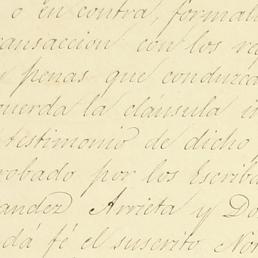 ó en contra, formali
ransaccion con los re
y penas que conduzca
uerda la cláusula in
testimonio de dicho
robado por los Escriba
andez Arrieta y Do
dá fé el suscrito No